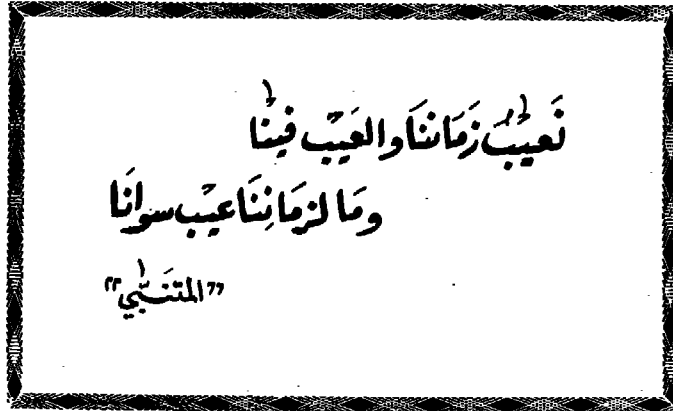 نَعيبُ زَمَاننَا والعَيب فينَا
ومَا لزمَانِنَا عيب سوانَا
"المتنَبّي"